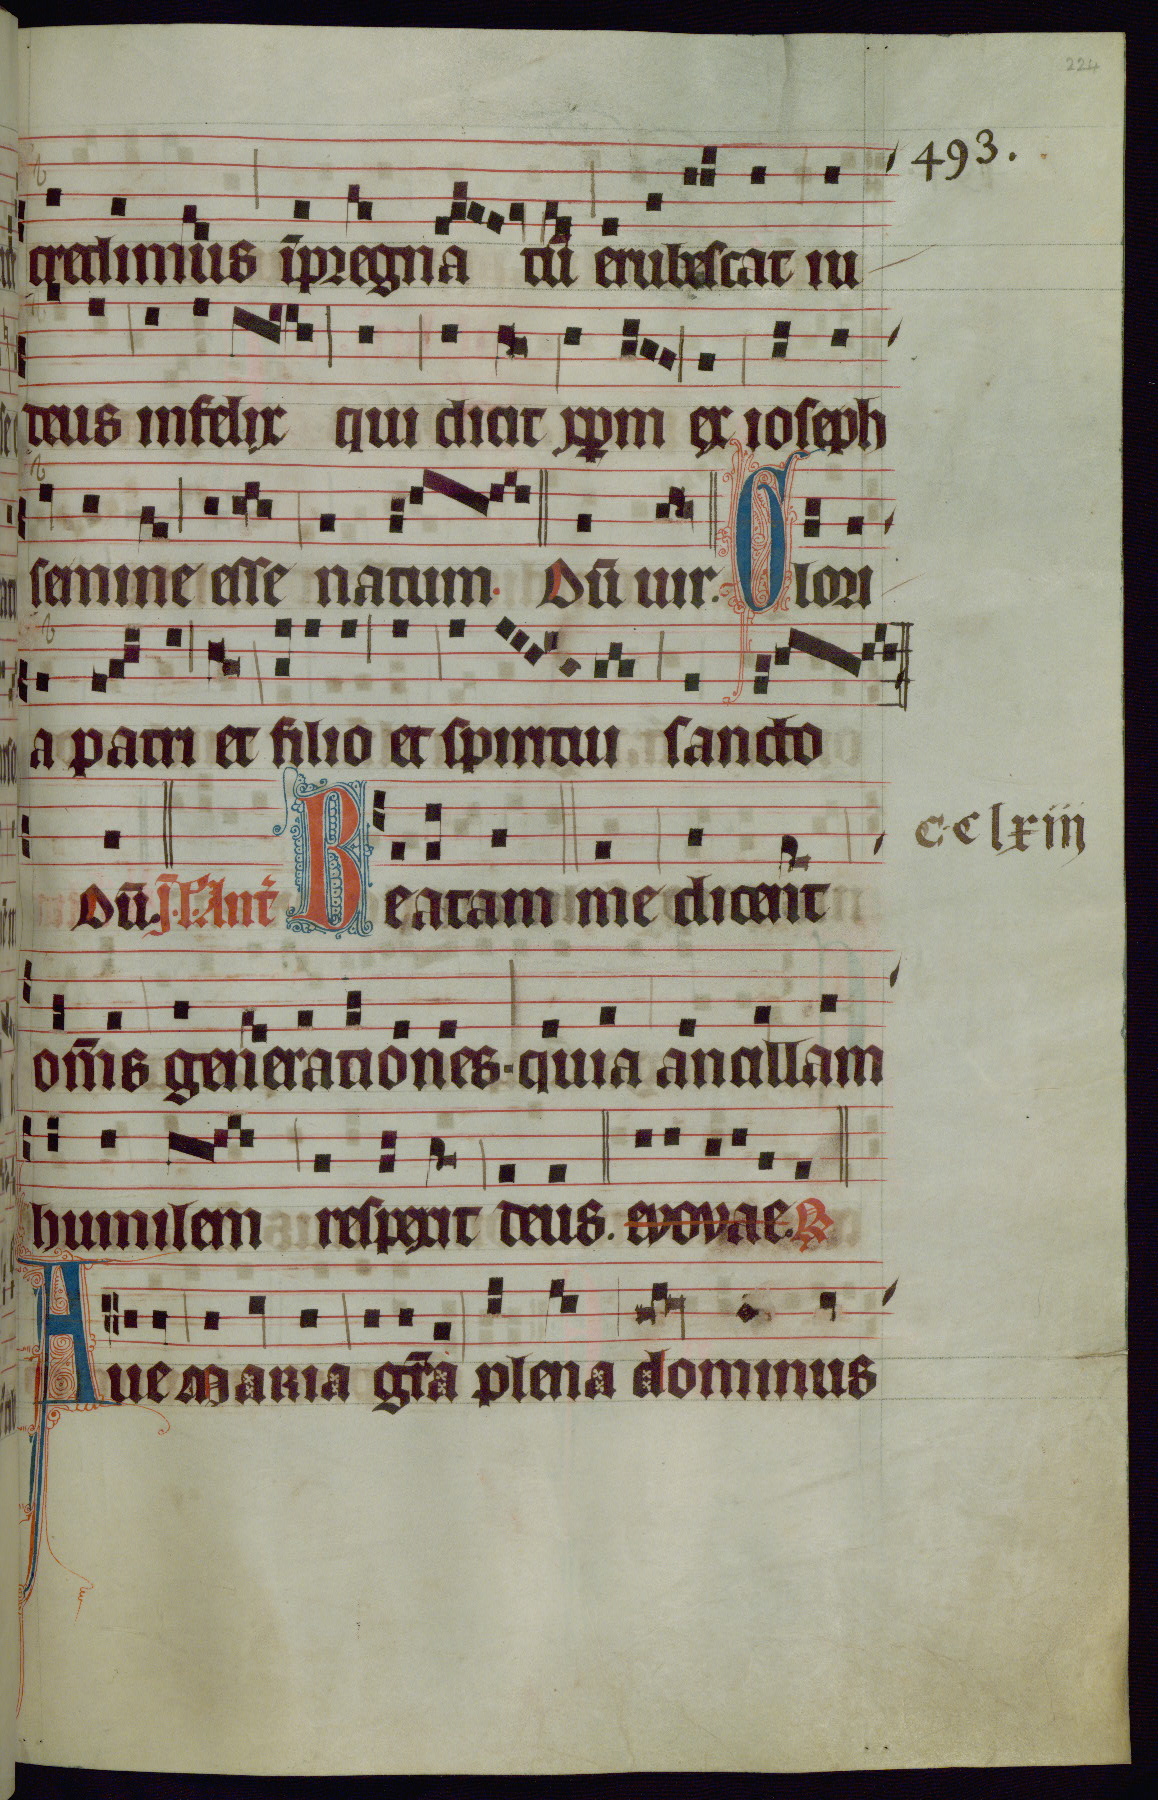 224
493.
credimus īpregna tū erubescat iu
deus infelix qui dicit xp̄m ex ioseph
semine esse natum. Dū uir. Glori
a patri et filio et spiritui sancto
Dū. Beatam me dicent
c·c lxiii
om̄s generationes. quia ancillam
humilem respexit deus. evovae. ℟
Ave maria grā plena dominus